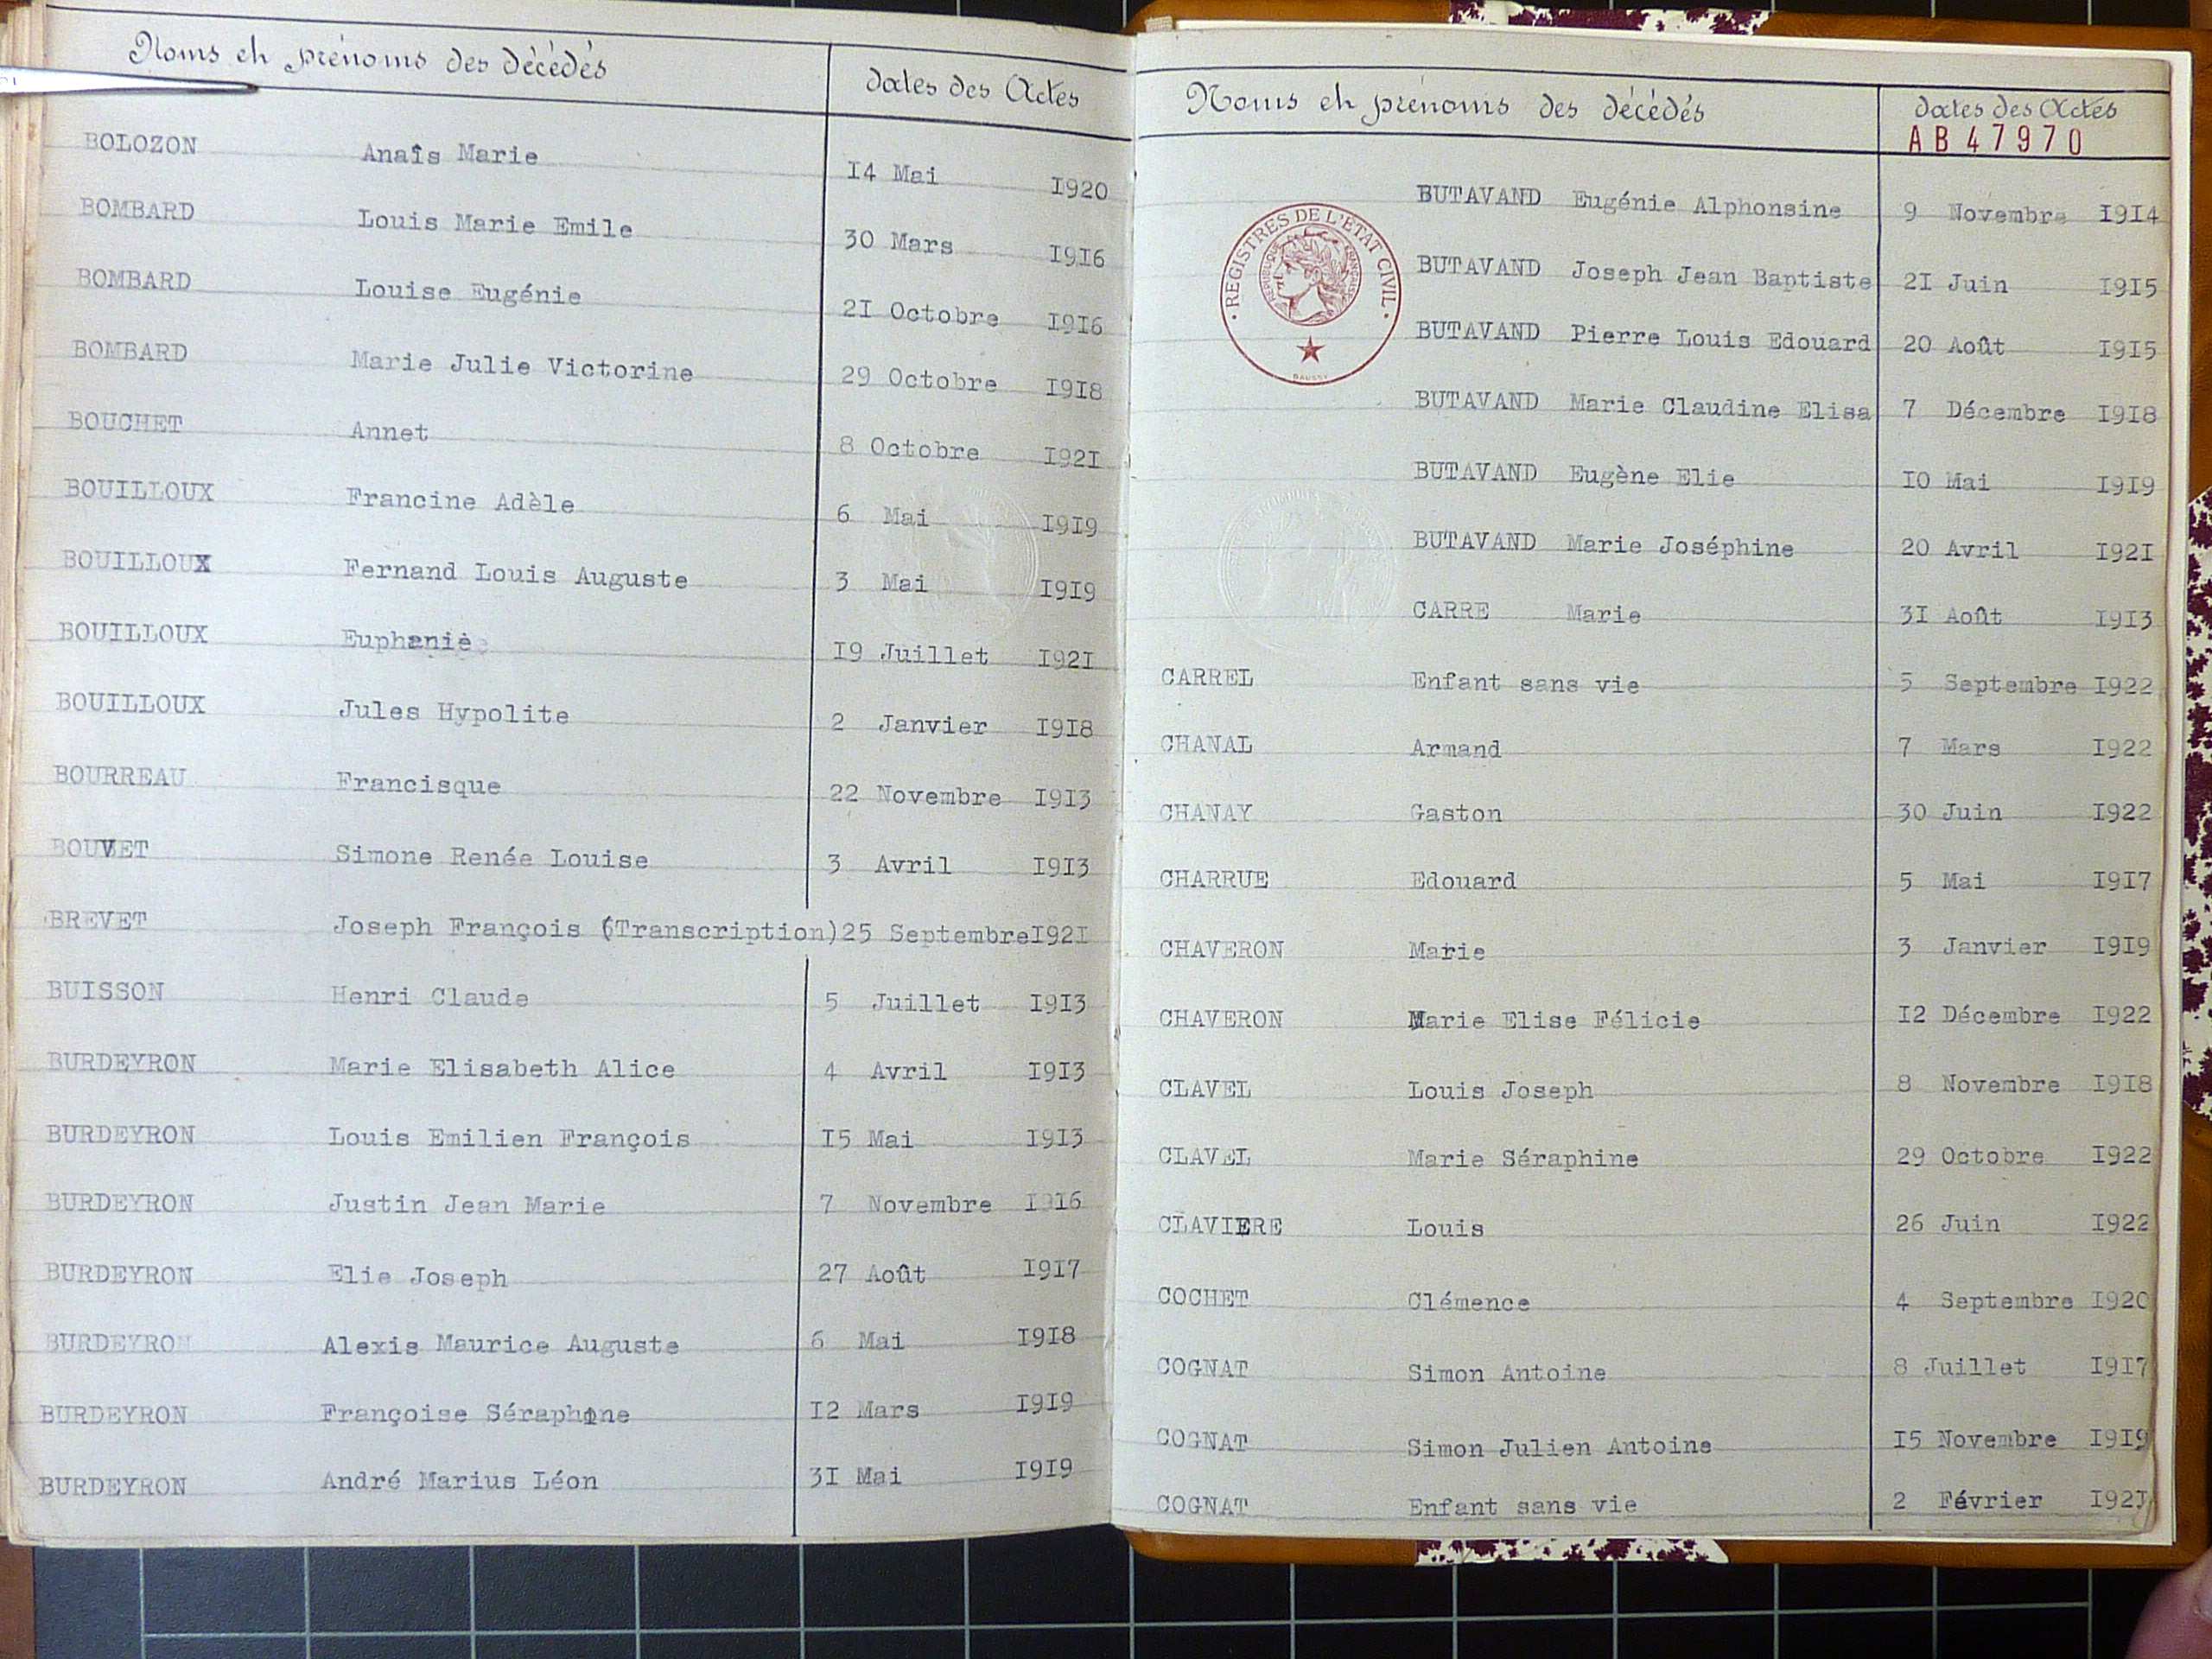 Noms et prénoms des décédés dates des Actes
BOLOZON Anaîs Marie 14 Mai 1920
BOMBARD Louis Marie Emile 30 Mars 1916
BOMBARD Louise Eugénie 21 Octobre 1916
BOMBARD Marie Julie Victorine 29 Octobre 1918
BOUCHET Annet 8 Octobre 1921
BOUILLOUX Francine Adèle 6 Mai 1919
BOUILLOUX Fernand Louis Auguste 3 Mai 1919
BOUILLOUX 19 Juillet 1921
BOUILLOUX Jules Hypolite 2 Janvier 1918
BOURREAU Francisque 22 Novembre 1913
BOUVET Simone Renée Louise 3 Avril 1913
BREVET Joseph François (Transcription) 25 Septembre 1921
BUISSON Henri Claude 5 Juillet 1913
BURDEYRON Marie Elisabeth Alice 4 Avril 1913
BURDEYRON Louis Emilien François 15 Mai 1913
BURDEYRON Justin Jean Marie 7 Novembre 1916
BURDEYRON Elie Joseph 27 Août 1917
BURDEYRON Alexis Maurice Auguste 6 Mai 1918
BURDEYRON Françoise Séraphine 12 Mars 1919
BURDEYRON André Marius Léon 31 Mai 1919
Noms et prénoms des décédés dates des Actes
AB47970
REGISTRES DE L'ETAT CIVIL
REPUBLIQUE FRANÇAISE
BUTAVAND Eugénie Alphonsine 9 Novembre 1914
BUTAVAND Joseph Jean Baptiste 21 Juin 1915
BUTAVAND Pierre Louis Edouard 20 Août 1915
BUTAVAND Marie Claudine Elisa 7 Décembre 1918
BUTAVAND Eugène Elie 10 Mai 1919
BUTAVAND Marie Joséphine 20 Avril 1921
CARRE Marie 31 Août 1913
CARREL Enfant sans vie 5 Septembre 1922
CHANAL Armand 7 Mars 1922
CHANAY Gaston 30 Juin 1922
CHARRUE Edouard 5 Mai 1917
CHAVERON Marie 3 Janvier 1919
CHAVERON Marie Elise Félicie 12 Décembre 1922
CLAVEL Louis Joseph 8 Novembre 1918
CLAVEL Marie Séraphine 29 Octobre 1922
CLAVIERE Louis 26 Juin 1922
COCHET Clémence 4 Septembre 1920
COGNAT Simon Antoine 8 Juillet 1917
COGNAT Simon Julien Antoine 15 Novembre 1919
COGNAT Enfant sans vie 2 Février 1921